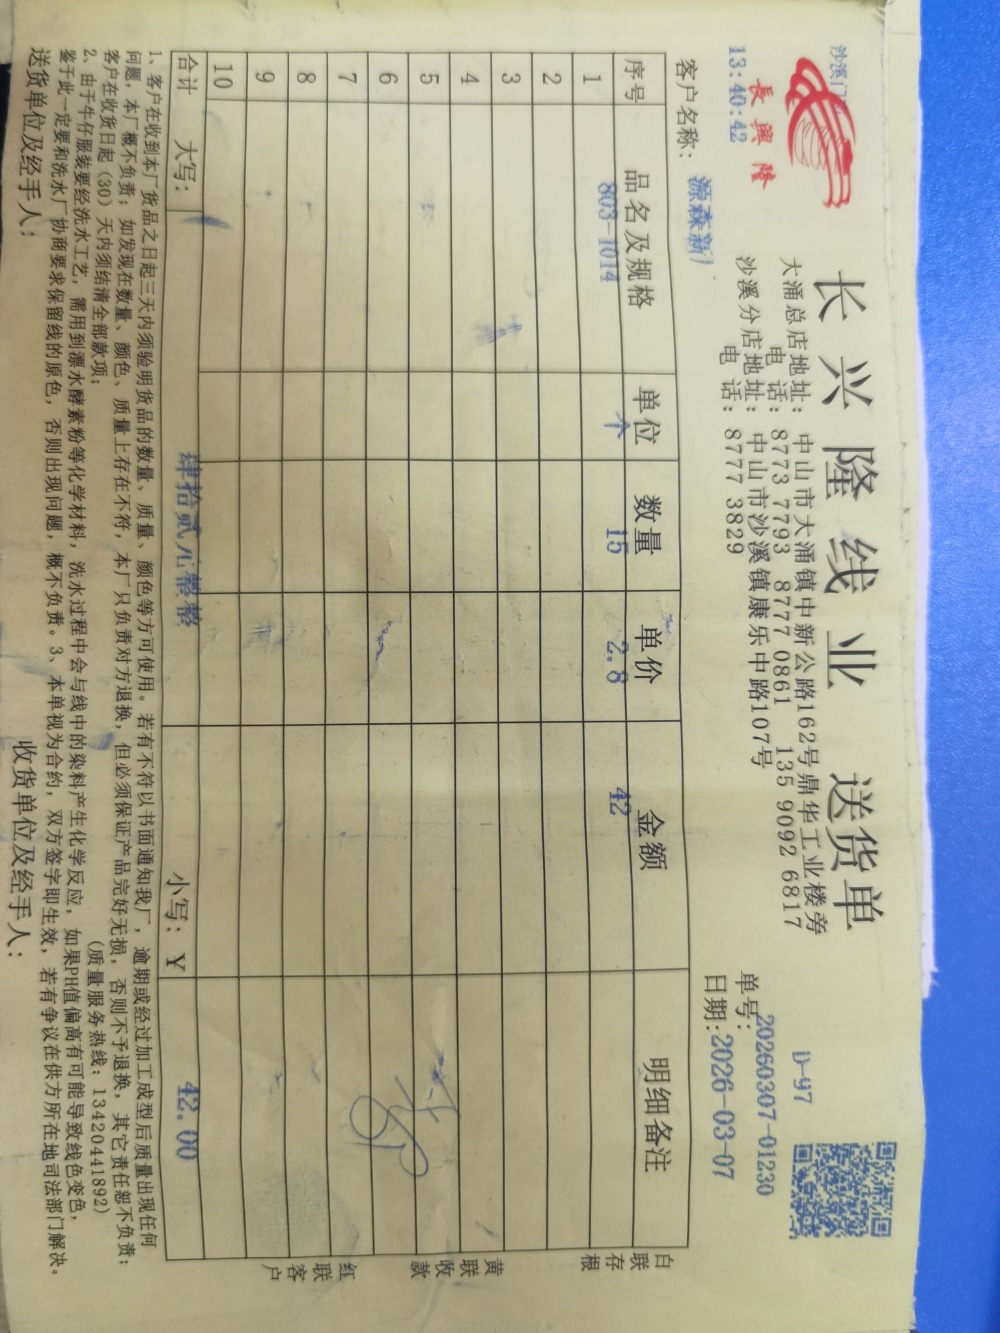 沙溪门
13:40:42
長興隆
长兴隆线业 送货单
大涌总店地址: 中山市大涌镇中新公路162号鼎华工业楼旁
电 话: 8773 7793 8777 0861 135 9092 6817
沙溪分店地址: 中山市沙溪镇康乐中路107号
电 话: 8777 3829
D-97
单号: 20260307-01230
日期: 2026-03-07
客户名称: 源森新厂
序号 品名及规格 单位 数量 单价 金额 明细备注
1 803-1014 个 15 2.8 42
2
3
4
5
6
7
8
9
10
合计 大写: 肆拾贰元整整 小写: ¥ 42.00
白联存根
黄联收款
红联客户
1、客户在收到本厂货品之日起三天内须验明货品的数量、质量、颜色等方可使用。若有不符以书面通知我厂,逾期或经过加工成型后质量出现任何
问题,本厂概不负责;如发现在数量、颜色、质量上存在不符,本厂只负责对方退换,但必须保证产品完好无损,否则不予退换,其它责任恕不负责;
客户在收货日起(30)天内须结清全部款项; (质量服务热线: 13420441892)
2、由于牛仔服装要经洗水工艺,需用到漂水酵素粉等化学材料,洗水过程中会与线中的染料产生化学反应,如果PH值偏高有可能导致线色变色,
鉴于此一定要和洗水厂协商要求保留线的原色,否则出现问题,概不负责。3、本单视为合约,双方签字即生效,若有争议在供方所在地司法部门解决。
送货单位及经手人: 收货单位及经手人: